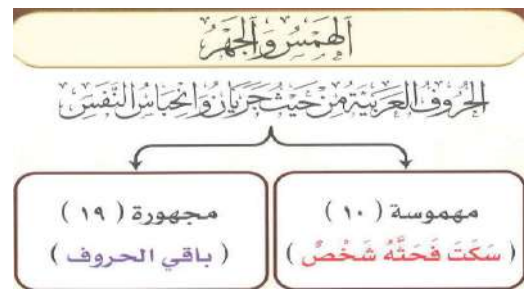 الهَمْسُ وَالجَهْرُ
الحُرُوفُ العَرَبِيَّةُ مِنْ حَيْثُ جَرَيَانُ وَانْحِبَاسُ النَّفَسِ
مهموسة ( ١٠ )
( سَكَتَ فَحَثَّهُ شَخْصٌ )
مجهورة ( ١٩ )
( باقي الحروف )